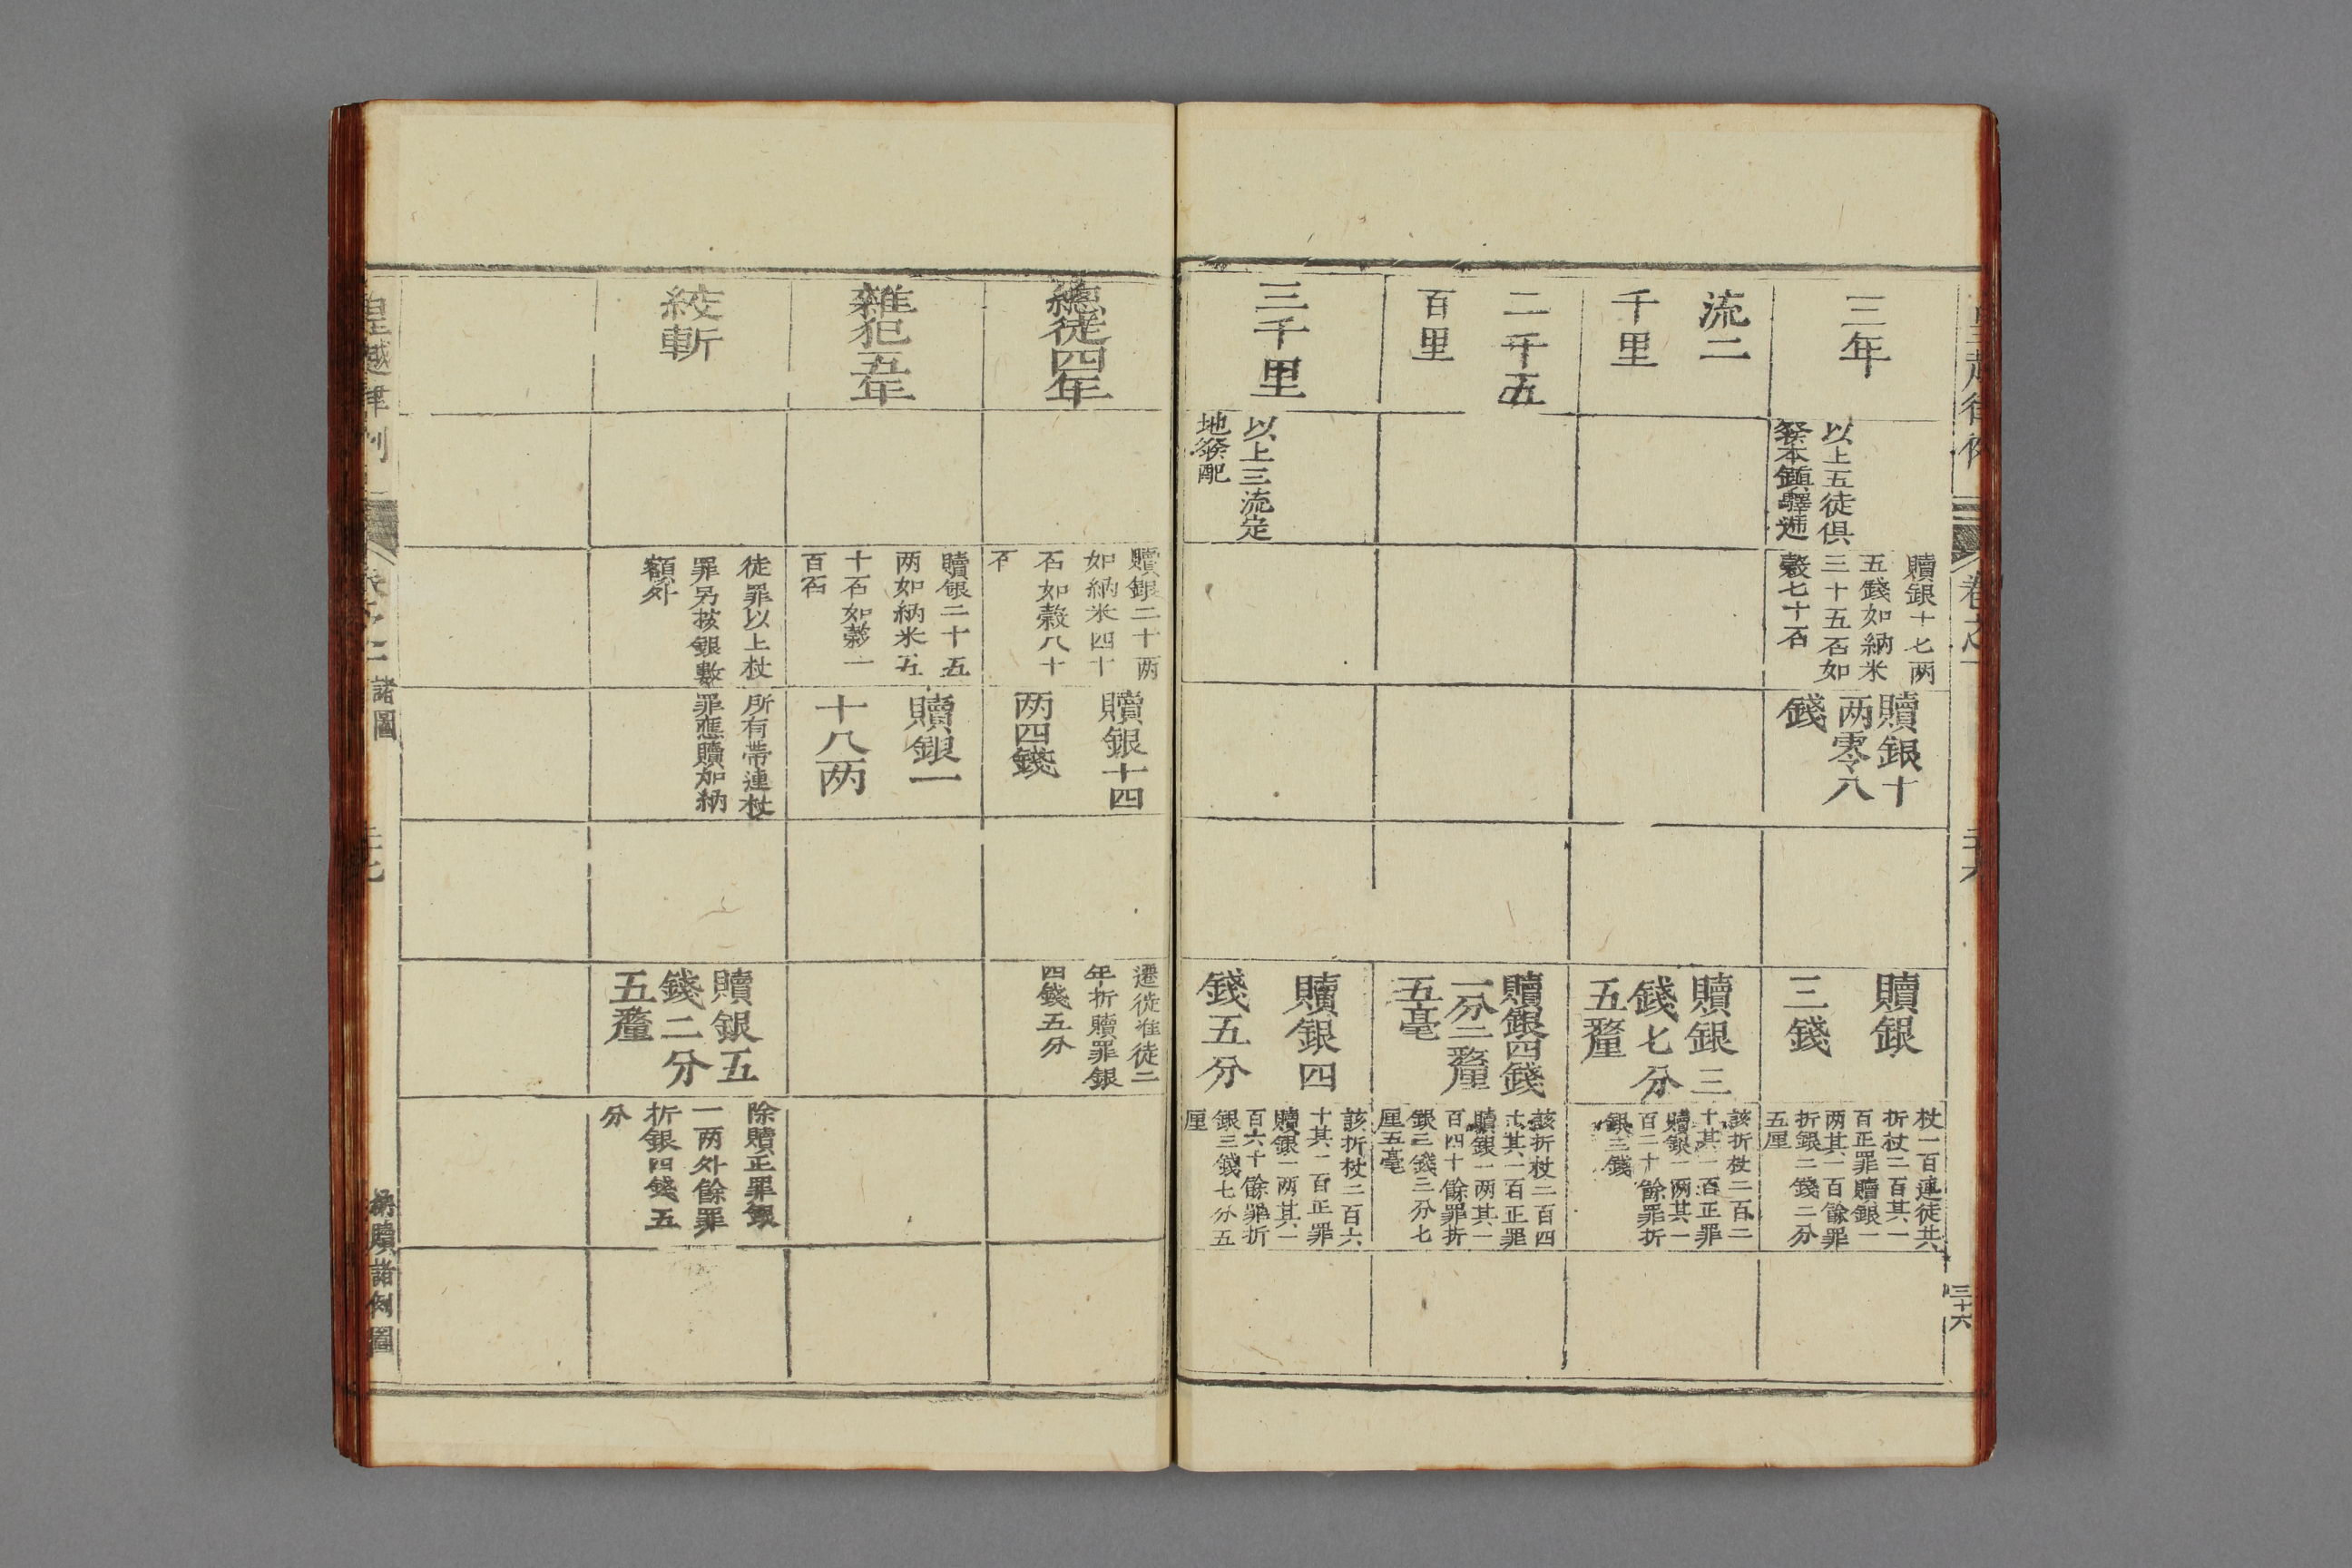 三年
以上五徒俱
發本鎮驛遞
贖銀十七两
五錢如納米
三十五石如
穀七十石
贖銀十
两零八
錢
贖銀
三錢
杖一百連徒共
折杖二百其一
百正罪贖銀一
两其一百餘罪
折銀二錢二分
五厘
流二
千里
贖銀三
錢七分
五釐
該折杖二百二
十其一百正罪
贖銀一两其一
百二十餘罪折
銀三錢
二千五
百里
贖銀四錢
一分二釐
五毫
該折杖二百四
十其一百正罪
贖銀一两其一
百四十餘罪折
銀三錢三分七
厘五毫
三千里
以上三流定
地發配
贖銀四
錢五分
該折杖二百六
十其一百正罪
贖銀一两其一
百六十餘罪折
銀三錢七分五
厘
三十六
總徒四年
贖銀二十两
如納米四十
石如穀八十
石
贖銀十四
两四錢
遷徙准徒二
年折贖罪銀
四錢五分
雜犯五年
贖銀二十五
两如納米五
十石如穀一
百石
贖銀一
十八两
絞斬
徒罪以上杖
罪另按銀數
額外
所有帶連杖
罪應贖加納
贖銀五
錢二分
五釐
除贖正罪銀
一两外餘罪
折銀四錢五
分
皇越律例
諸圖
納贖諸例圖